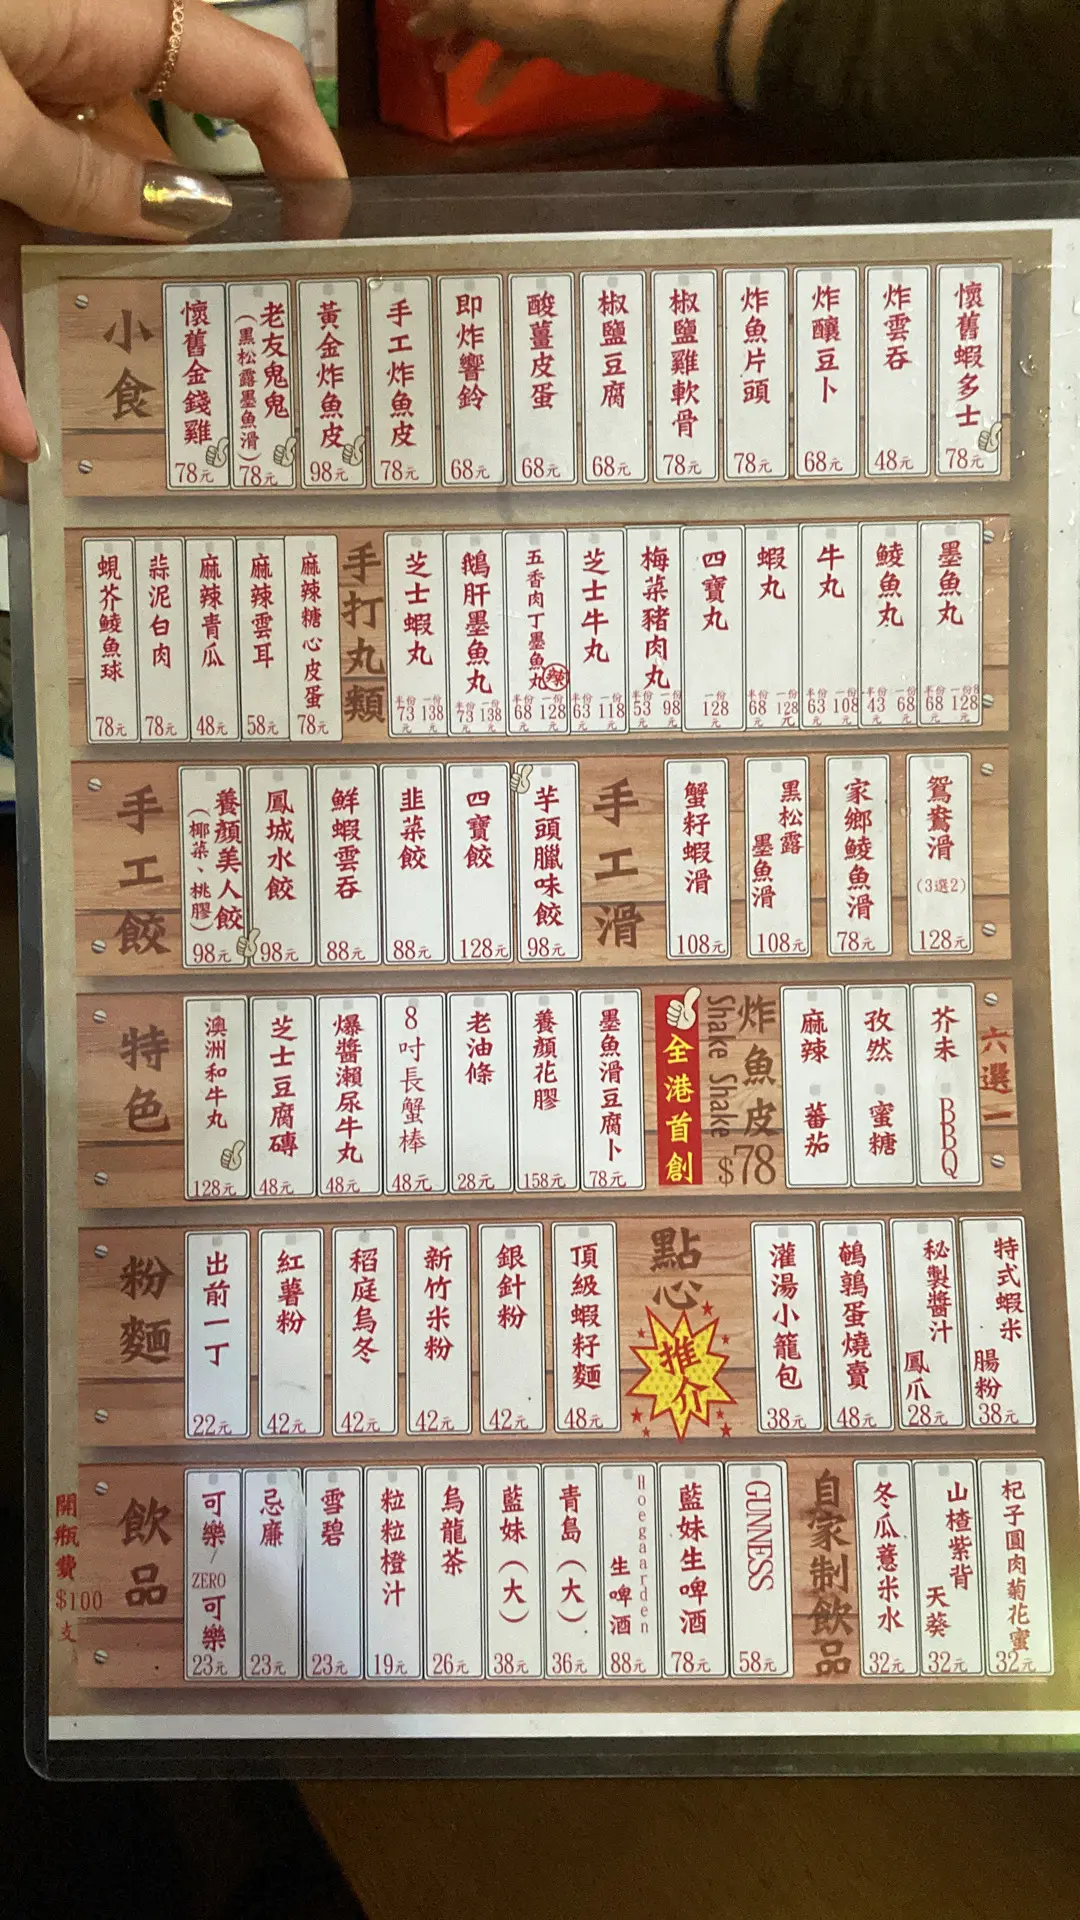 小食
懷舊金錢雞
78元
老友鬼鬼
(黑松露墨魚滑)
78元
黃金炸魚皮
98元
手工炸魚皮
78元
即炸響鈴
68元
酸薑皮蛋
68元
椒鹽豆腐
68元
椒鹽雞軟骨
78元
炸魚片頭
78元
炸釀豆卜
68元
炸雲吞
48元
懷舊蝦多士
78元
蜆芥鯪魚球
78元
蒜泥白肉
78元
麻辣青瓜
48元
麻辣雲耳
58元
麻辣糖心皮蛋
78元
手打丸類
芝士蝦丸
半份 73元 一份 138元
鵝肝墨魚丸
半份 73元 一份 138元
五香肉丁墨魚丸
辣
半份 68元 一份 128元
芝士牛丸
半份 63元 一份 118元
梅菜豬肉丸
半份 53元 一份 98元
四寶丸
一份 128元
蝦丸
半份 68元 一份 128元
牛丸
半份 63元 一份 108元
鯪魚丸
半份 43元 一份 68元
墨魚丸
半份 68元 一份 128元
手工餃
養顏美人餃
(椰菜、桃膠)
98元
鳳城水餃
98元
鮮蝦雲吞
88元
韭菜餃
88元
四寶餃
128元
芋頭臘味餃
98元
手工滑
蟹籽蝦滑
108元
黑松露
墨魚滑
108元
家鄉鯪魚滑
78元
鴛鴦滑
(3選2)
128元
特色
澳洲和牛丸
128元
芝士豆腐磚
48元
爆醬瀨尿牛丸
48元
8吋長蟹棒
48元
老油條
28元
養顏花膠
158元
墨魚滑豆腐卜
78元
全港首創
Shake Shake
炸魚皮
$78
麻辣
蕃茄
孜然
蜜糖
芥末
BBQ
六選一
粉麵
出前一丁
22元
紅薯粉
42元
稻庭烏冬
42元
新竹米粉
42元
銀針粉
42元
頂級蝦籽麵
48元
點心
推介
灌湯小籠包
38元
鵪鶉蛋燒賣
48元
秘製醬汁
鳳爪
28元
特式蝦米
腸粉
38元
開瓶費
$100
支
飲品
可樂/
ZERO可樂
23元
忌廉
23元
雪碧
23元
粒粒橙汁
19元
烏龍茶
26元
藍妹(大)
38元
青島(大)
36元
Hoegaarden
生啤酒
88元
藍妹生啤酒
78元
GUNNESS
58元
自家制飲品
冬瓜薏米水
32元
山楂紫背
天葵
32元
杞子圓肉菊花蜜
32元